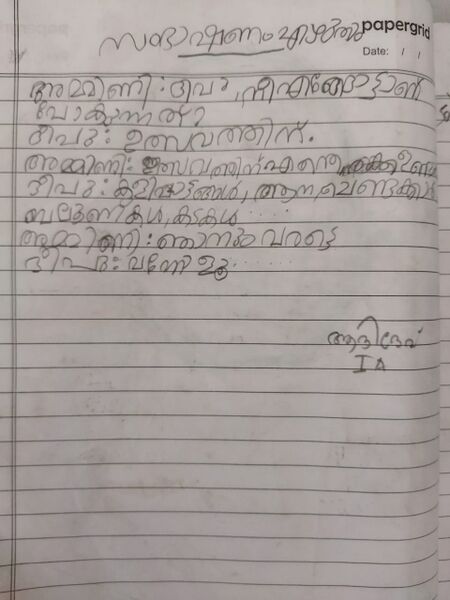 സംഭാഷണം എഴുതുക
papergrid
Date: / /
അമ്മിണി : ദീപു, നീ എങ്ങോട്ടാണ്
പോകുന്നത്?
ദീപു : ഉത്സവത്തിന്.
അമ്മിണി: ഉത്സവത്തിന് എന്തൊക്കെ
ദീപു : കളിപ്പാട്ടങ്ങൾ, ആന, ചെണ്ടക്കാർ
ബലൂണുകൾ, കടകൾ .....
അമ്മിണി : ഞാനും വരട്ടെ
ദീപു : വന്നോളൂ.......
ആദിദേവ്
I A